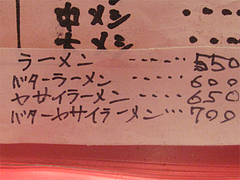 中メン
ラーメン ----- 550
バターラーメン ..... 600
ヤサイラーメン .... 650
バターヤサイラーメン... 700